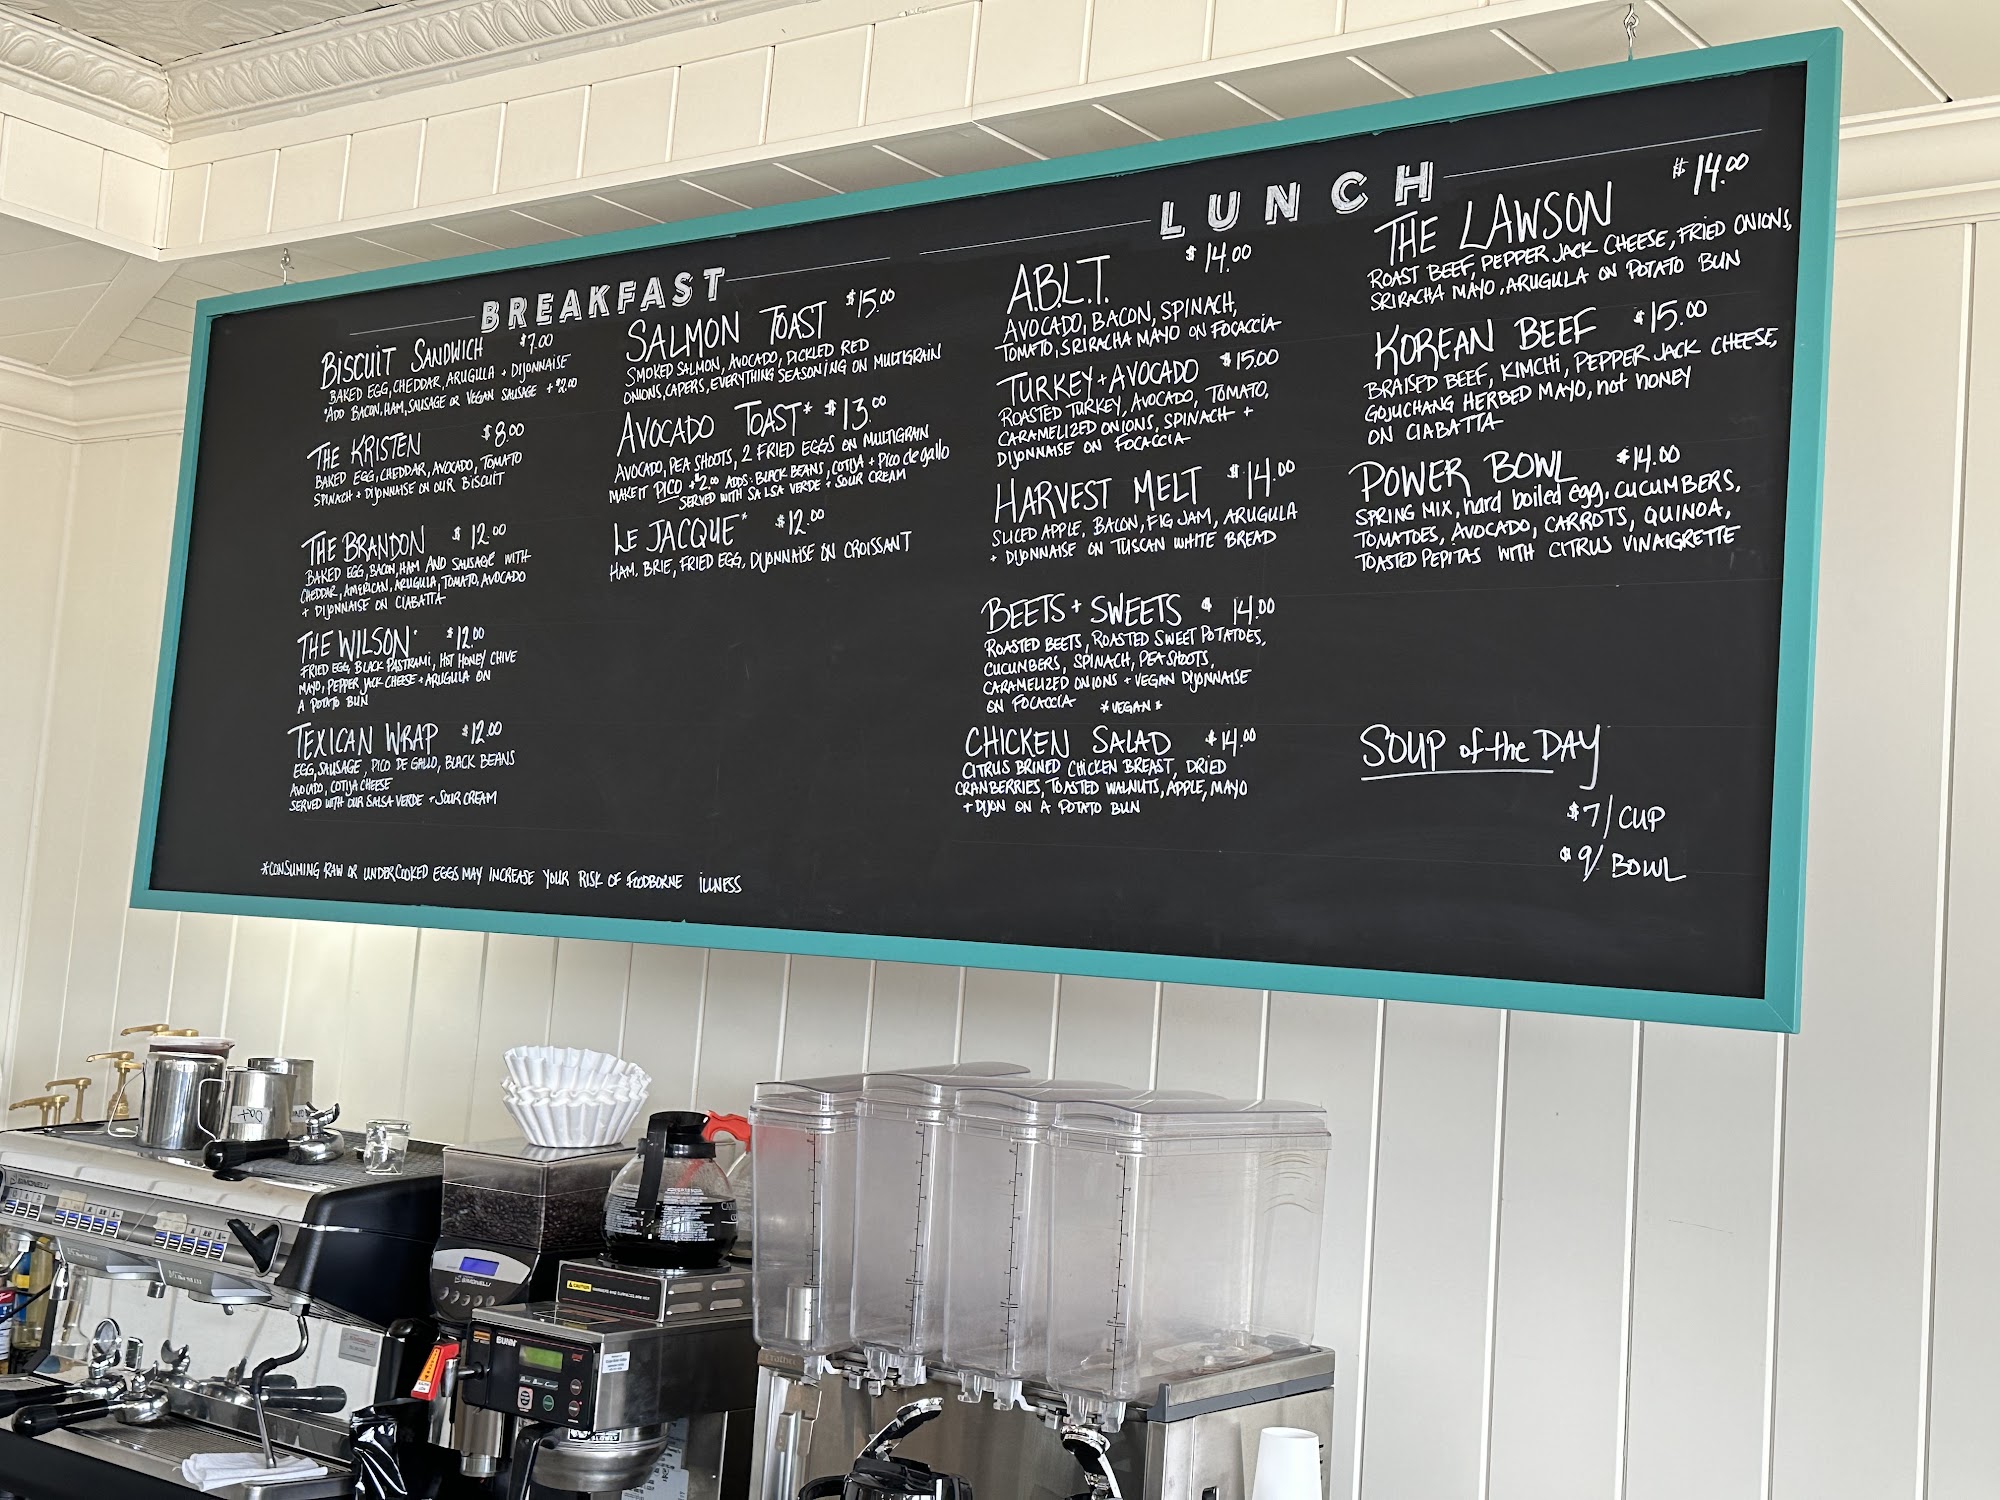 BREAKFAST
BISCUIT SANDWICH $7.00
BAKED EGG, CHEDDAR, ARUGULA + DIJONNAISE
*ADD BACON, HAM, SAUSAGE OR VEGAN SAUSAGE + $2.00
THE KRISTEN $8.00
BAKED EGG, CHEDDAR, AVOCADO, TOMATO
SPINACH + DIJONNAISE ON OUR BISCUIT
THE BRANDON $12.00
BAKED EGG, BACON, HAM AND SAUSAGE WITH
CHEDDAR, AMERICAN, ARUGULA, TOMATO, AVOCADO
+ DIJONNAISE ON CIABATTA
THE WILSON* $12.00
FRIED EGG, BLACK PASTRAMI, HOT HONEY CHIVE
MAYO, PEPPER JACK CHEESE + ARUGULA ON
A POTATO BUN
TEXICAN WRAP $12.00
EGG, SAUSAGE, PICO DE GALLO, BLACK BEANS
AVOCADO, COTIJA CHEESE
SERVED WITH OUR SALSA VERDE + SOUR CREAM
SALMON TOAST $15.00
SMOKED SALMON, AVOCADO, PICKLED RED
ONIONS, CAPERS, EVERYTHING SEASONING ON MULTIGRAIN
AVOCADO TOAST* $13.00
AVOCADO, PEA SHOOTS, 2 FRIED EGGS ON MULTIGRAIN
MAKE IT PICO +$2.00 ADDS: BLACK BEANS, COTIJA + PICO de gallo
SERVED WITH SALSA VERDE + SOUR CREAM
LE JACQUE* $12.00
HAM, BRIE, FRIED EGG, DIJONNAISE ON CROISSANT
*CONSUMING RAW OR UNDERCOOKED EGGS MAY INCREASE YOUR RISK OF FOODBORNE ILLNESS
LUNCH
A.B.L.T. $14.00
AVOCADO, BACON, SPINACH,
TOMATO, SRIRACHA MAYO ON FOCACCIA
TURKEY + AVOCADO $15.00
ROASTED TURKEY, AVOCADO, TOMATO,
CARAMELIZED ONIONS, SPINACH +
DIJONNAISE ON FOCACCIA
HARVEST MELT $14.00
SLICED APPLE, BACON, FIG JAM, ARUGULA
+ DIJONNAISE ON TUSCAN WHITE BREAD
BEETS + SWEETS $14.00
ROASTED BEETS, ROASTED SWEET POTATOES,
CUCUMBERS, SPINACH, PEA SHOOTS,
CARAMELIZED ONIONS + VEGAN DIJONNAISE
ON FOCACCIA *VEGAN*
CHICKEN SALAD $14.00
CITRUS BRINED CHICKEN BREAST, DRIED
CRANBERRIES, TOASTED WALNUTS, APPLE, MAYO
+ DIJON ON A POTATO BUN
THE LAWSON $14.00
ROAST BEEF, PEPPER JACK CHEESE, FRIED ONIONS,
SRIRACHA MAYO, ARUGULA ON POTATO BUN
KOREAN BEEF $15.00
BRAISED BEEF, KIMCHI, PEPPER JACK CHEESE,
GOJUCHANG HERBED MAYO, not honey
ON CIABATTA
POWER BOWL $14.00
SPRING MIX, hard boiled egg, CUCUMBERS,
TOMATOES, AVOCADO, CARROTS, QUINOA,
TOASTED PEPITAS WITH CITRUS VINAIGRETTE
SOUP of the DAY
$7/CUP
$9/BOWL
SIMONELLI
SIMONELLI
CAUTION
BUNN